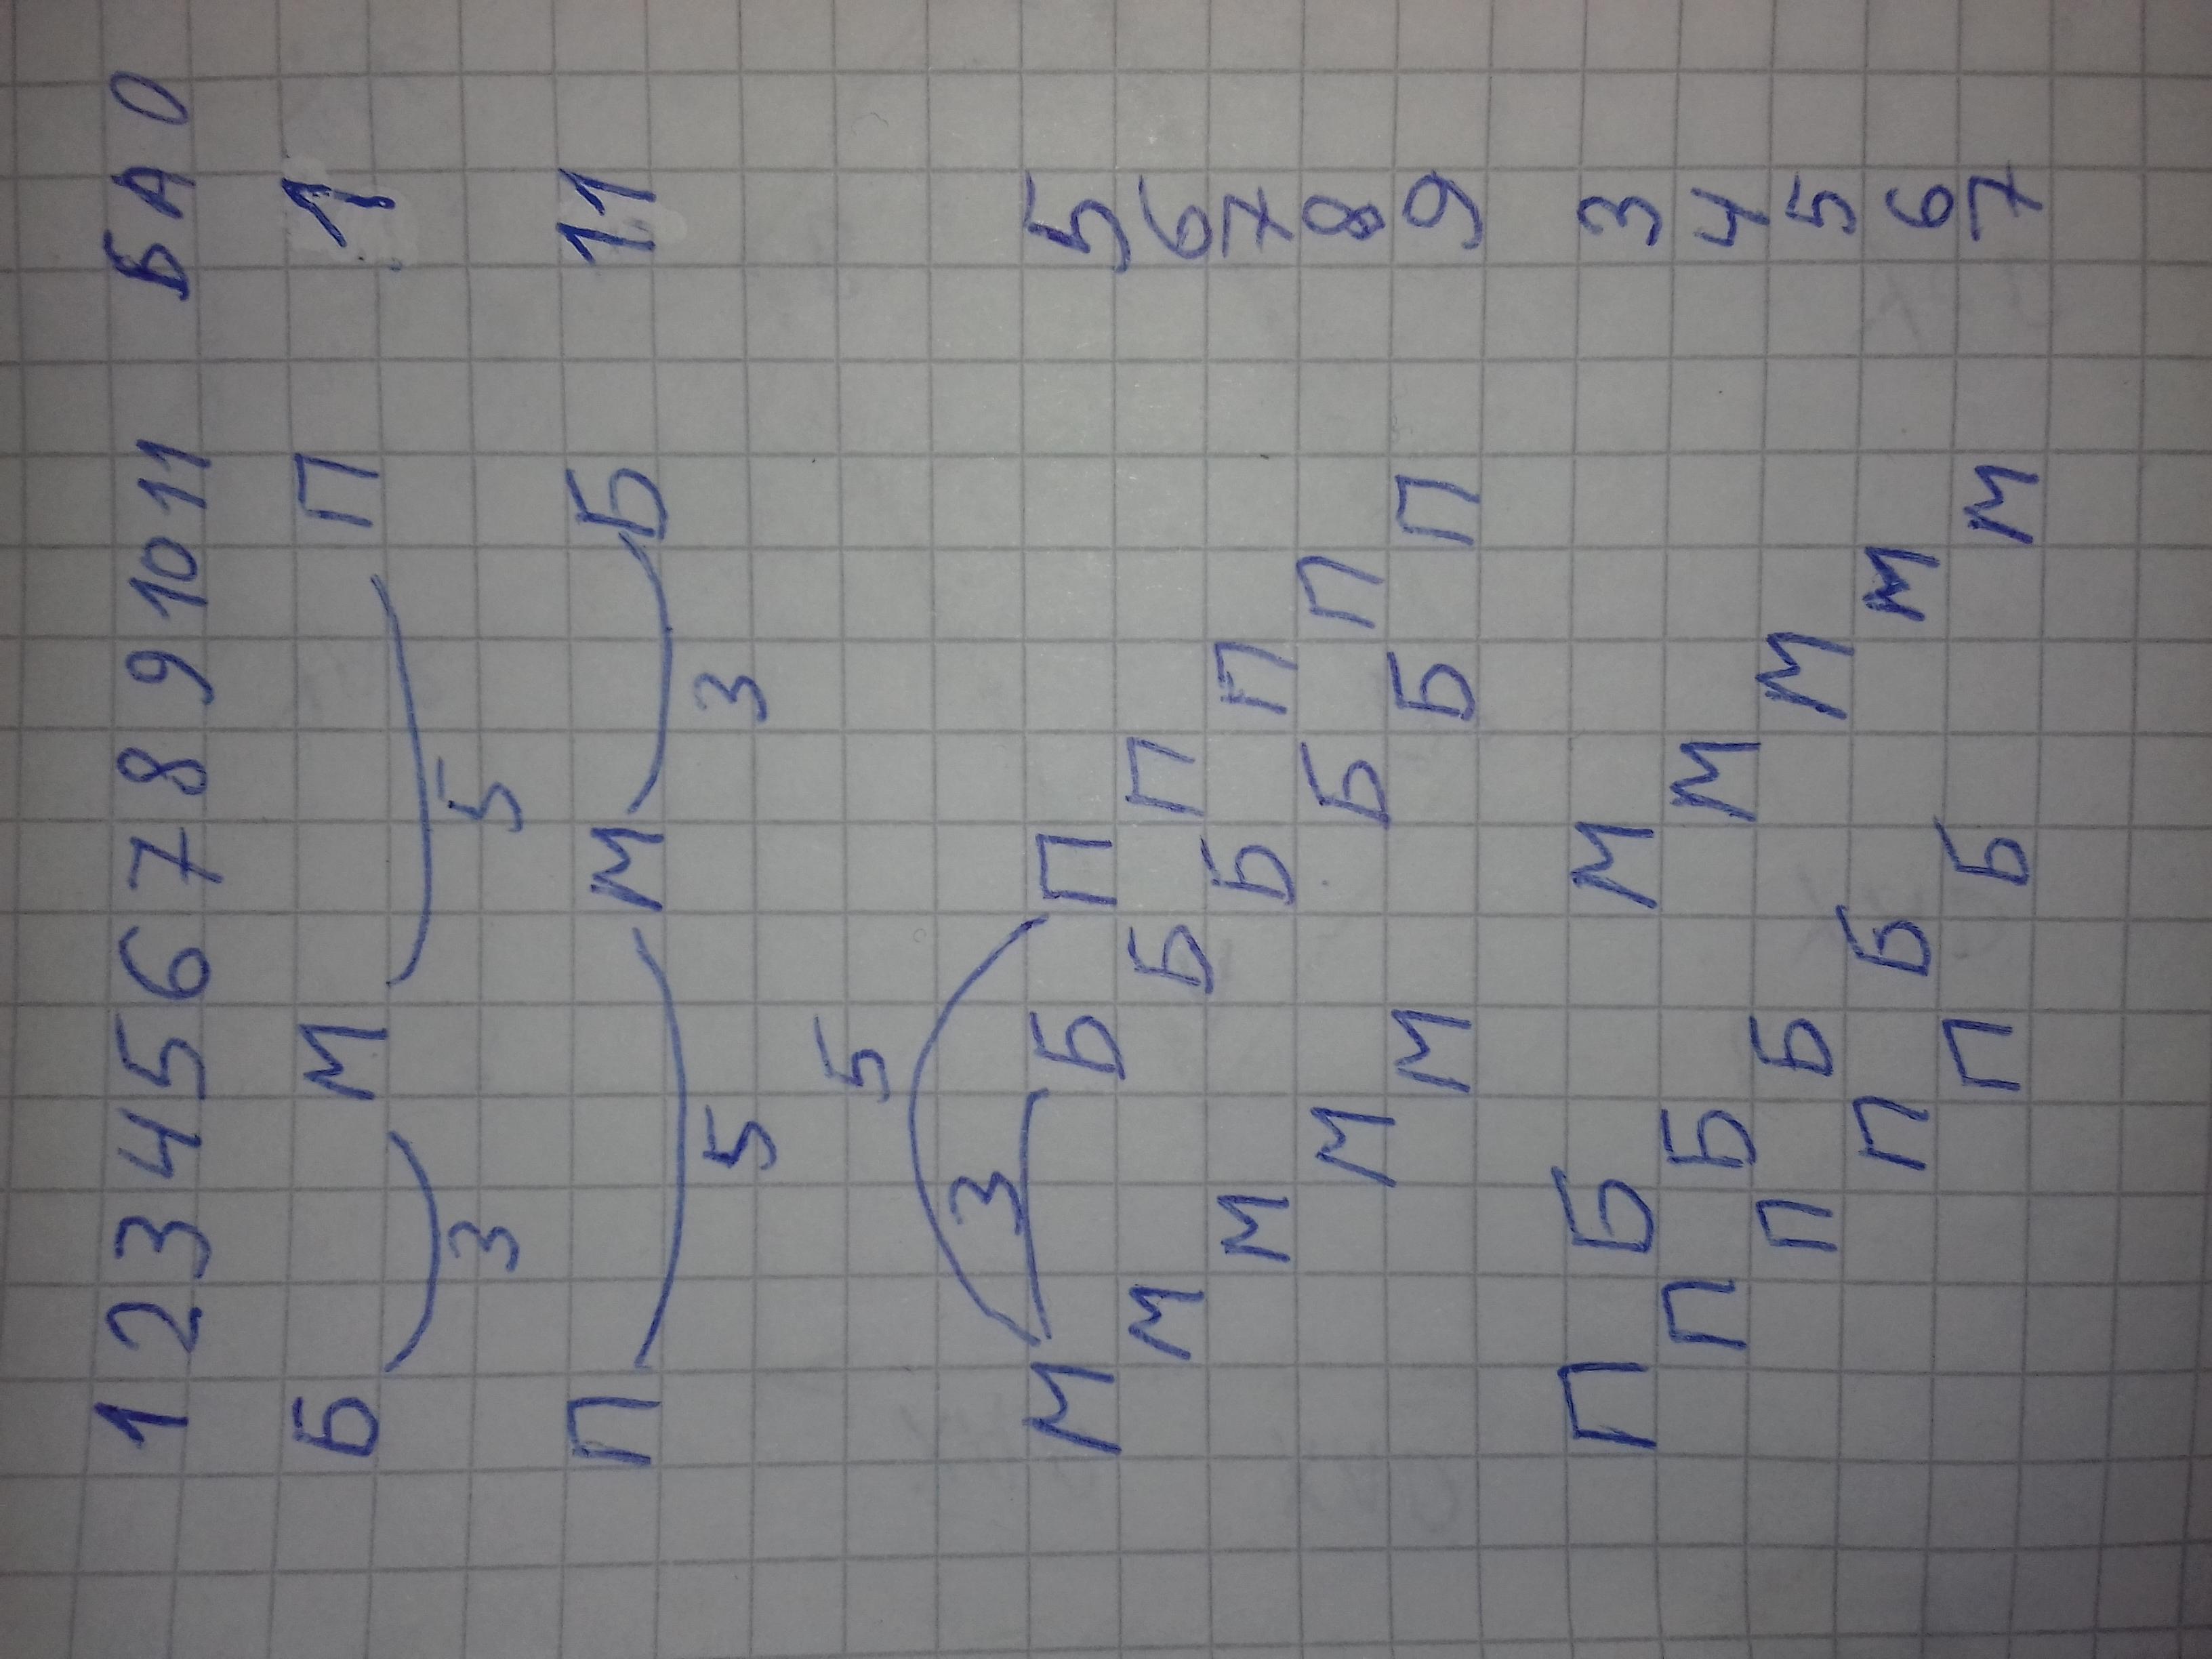 1 2 3 4 5 6 7 8 9 10 11 БА О
Б М П 1
3 5
П М Б 11
5 3
5
3
М Б П 5
М Б П 6
М Б П 7
М Б П 8
М Б П 9
П Б М 3
П Б М 4
П Б М 5
П Б М 6
П Б М 7